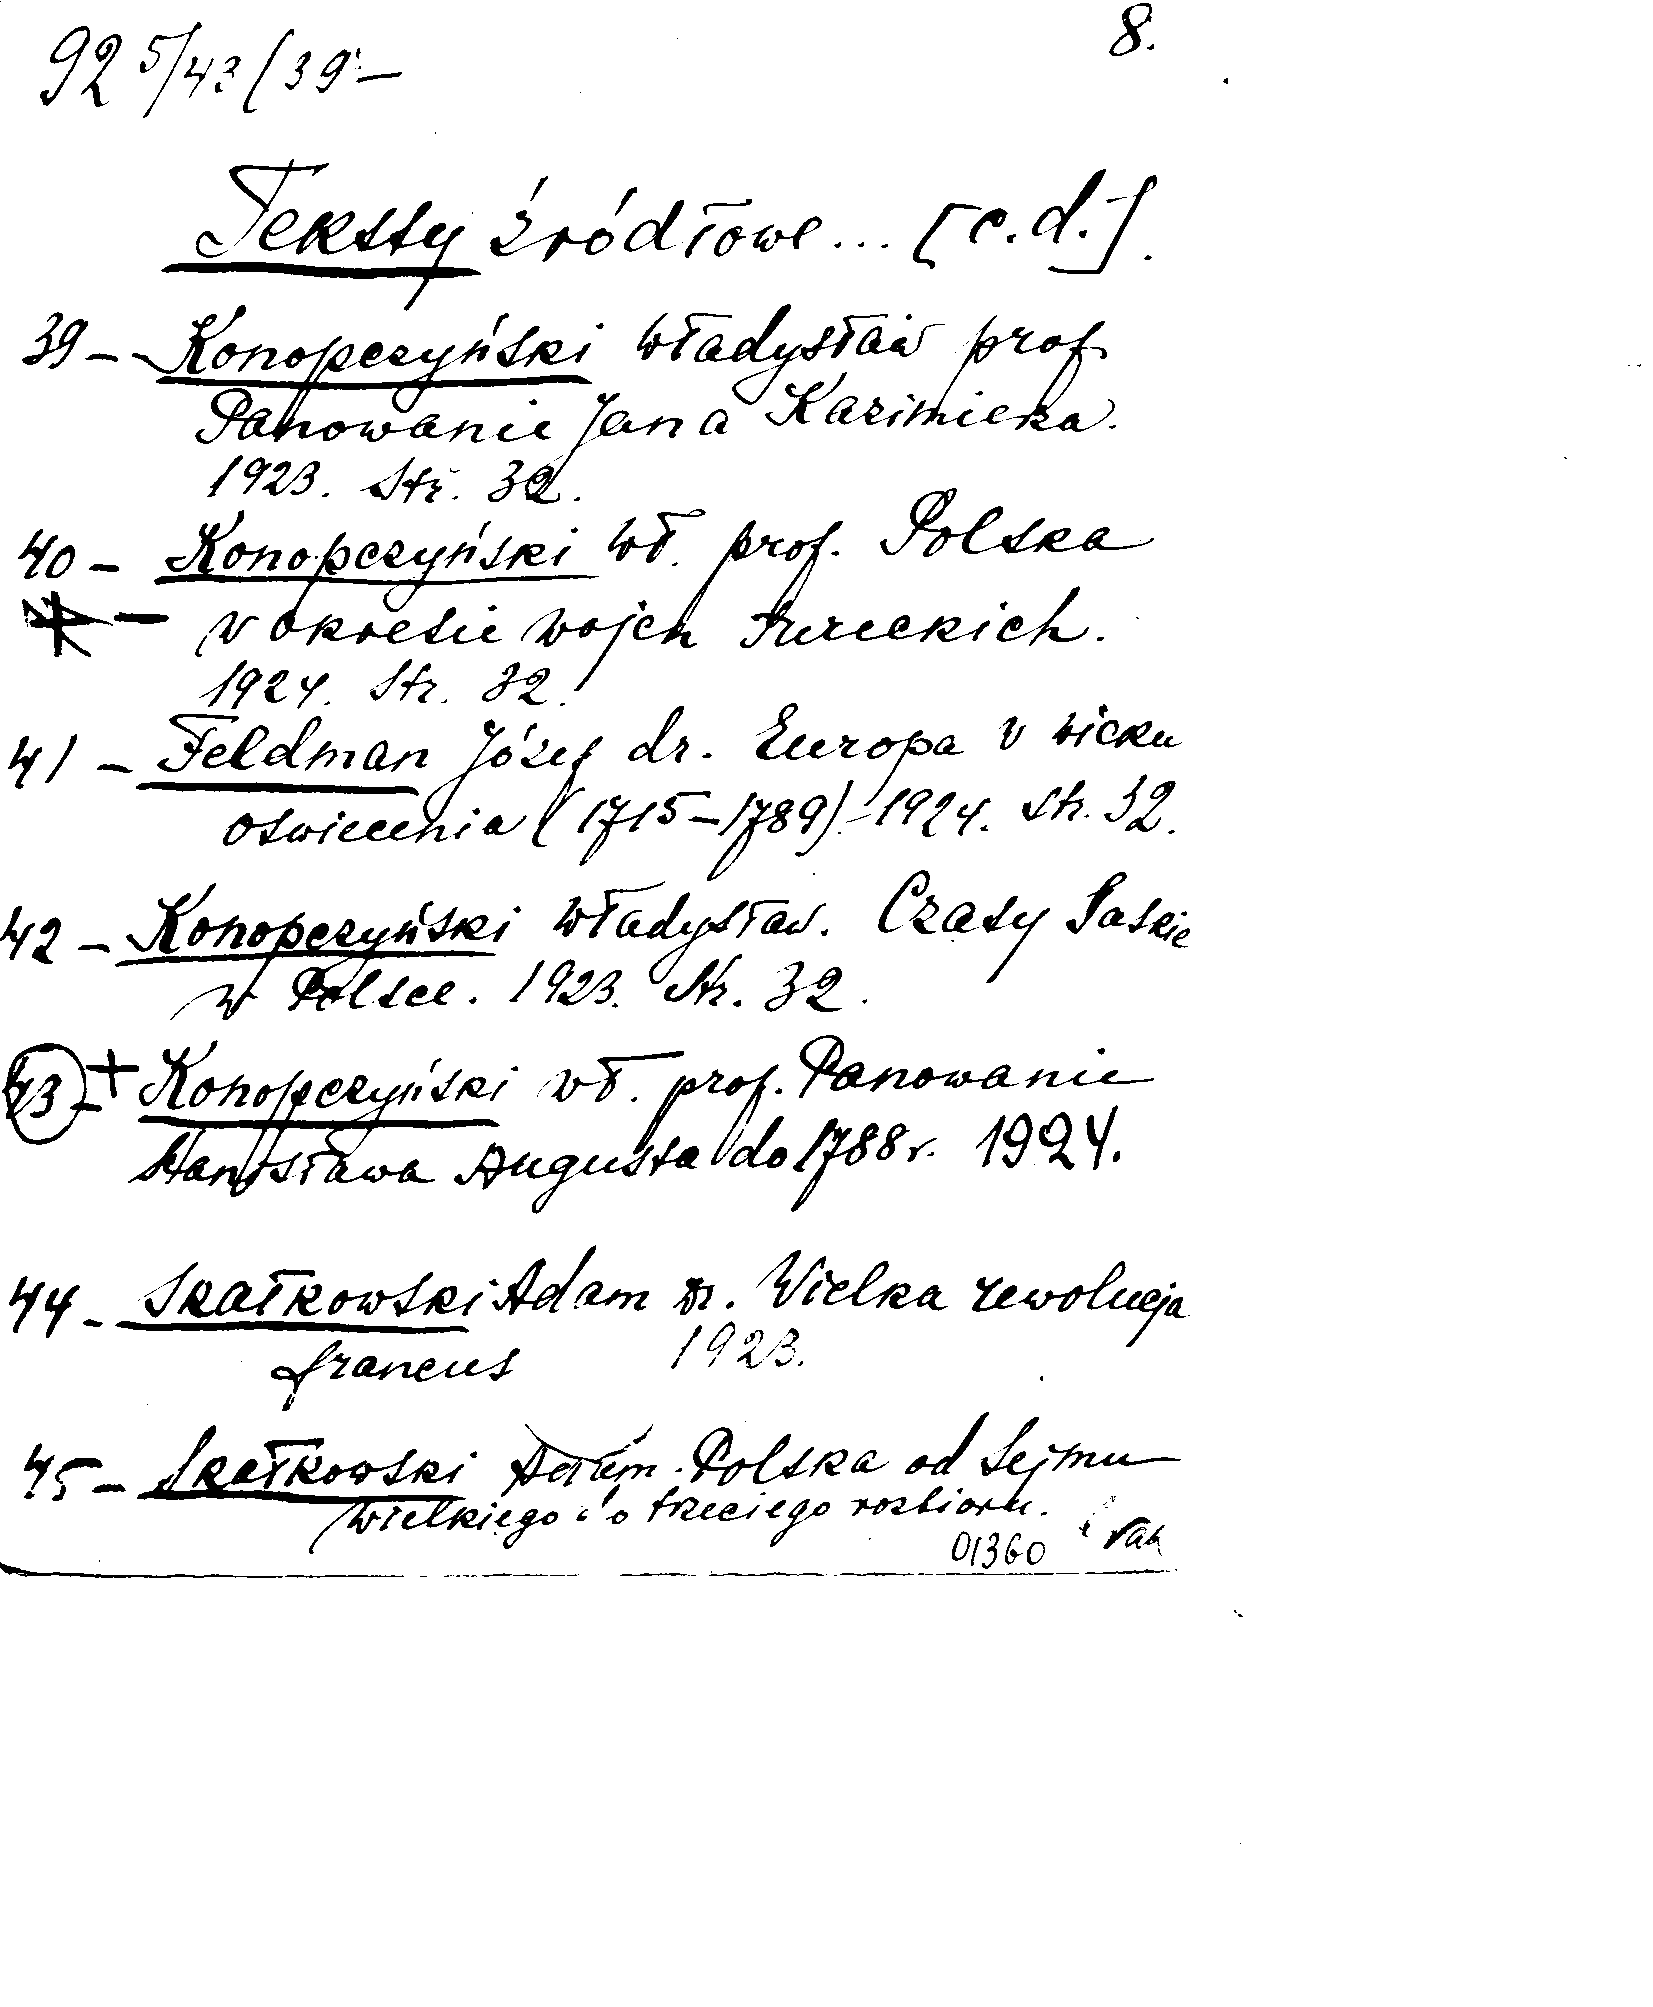 8.
92 5/43 (39 –
Teksty źródłowe ... [c.d.].
39 – Konopczyński Władysław prof.
Panowanie Jana Kazimierza.
1923. Str. 32.
40 – Konopczyński Wł. prof. Polska
w okresie wojen tureckich.
1924. Str. 32.
41 – Feldman Józef dr. Europa w wieku
oświecenia (1715–1789). 1924. Str. 32.
42 – Konopczyński Władysław. Czasy Saskie
w Polsce. 1923. Str. 32.
43 – + Konopczyński Wł. prof. Panowanie
Stanisława Augusta do 1788 r. 1924.
44 – Skałkowski Adam dr. Wielka rewolucja
francus 1923.
45 – Skałkowski Adam. Polska od Sejmu
Wielkiego do trzeciego rozbioru.
01360